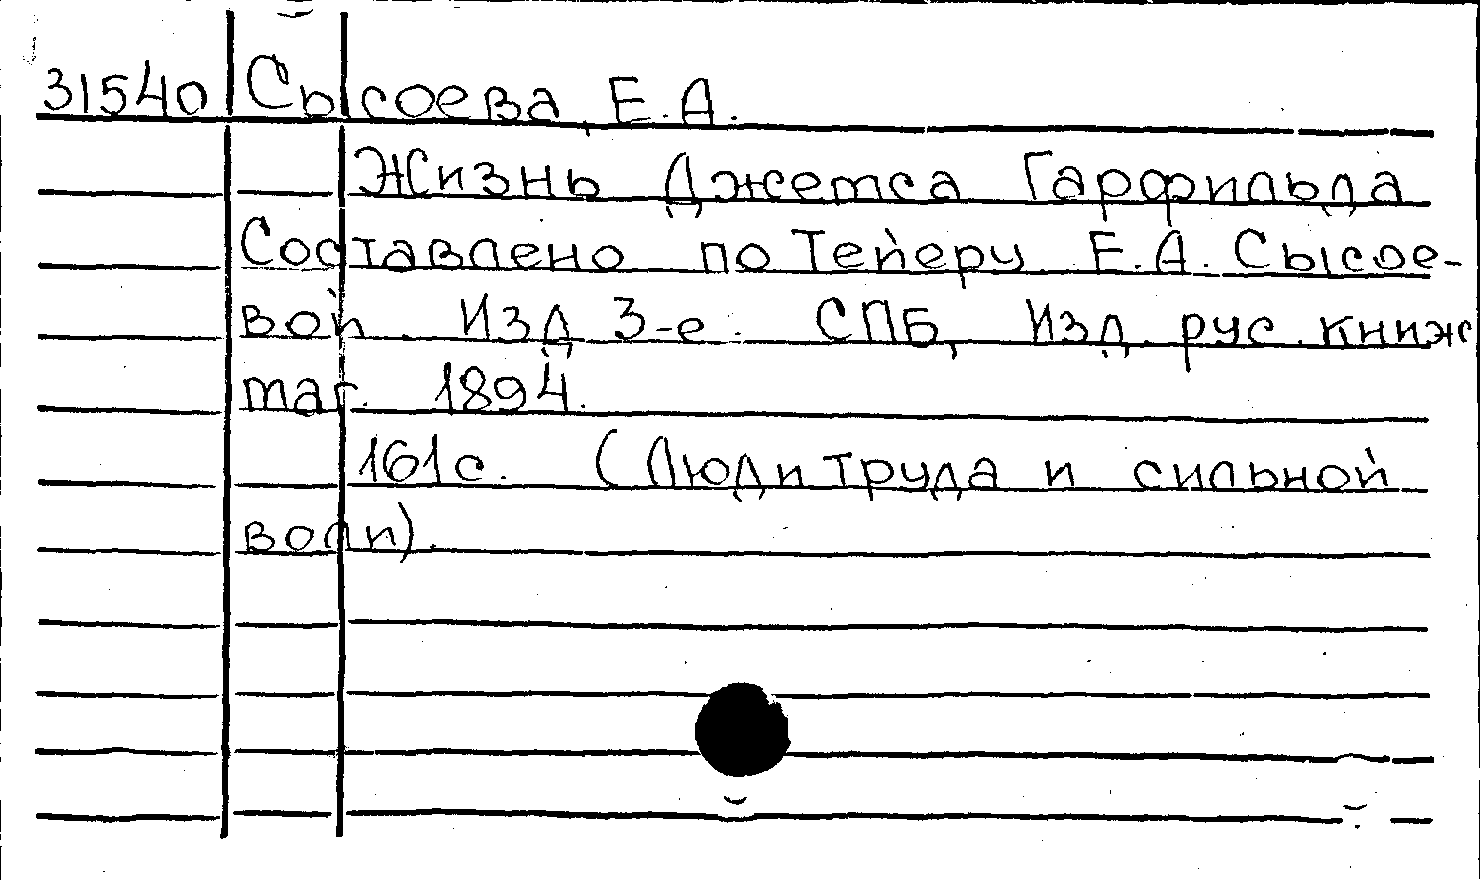 31540 Сысоева, Е.А.
Жизнь Джемса Гарфильда
Составлено по Тейеру Е.А. Сысое-
вой. Изд 3-е. СПБ, Изд. рус. книж
маг. 1894.
161с. (Люди труда и сильной
воли).